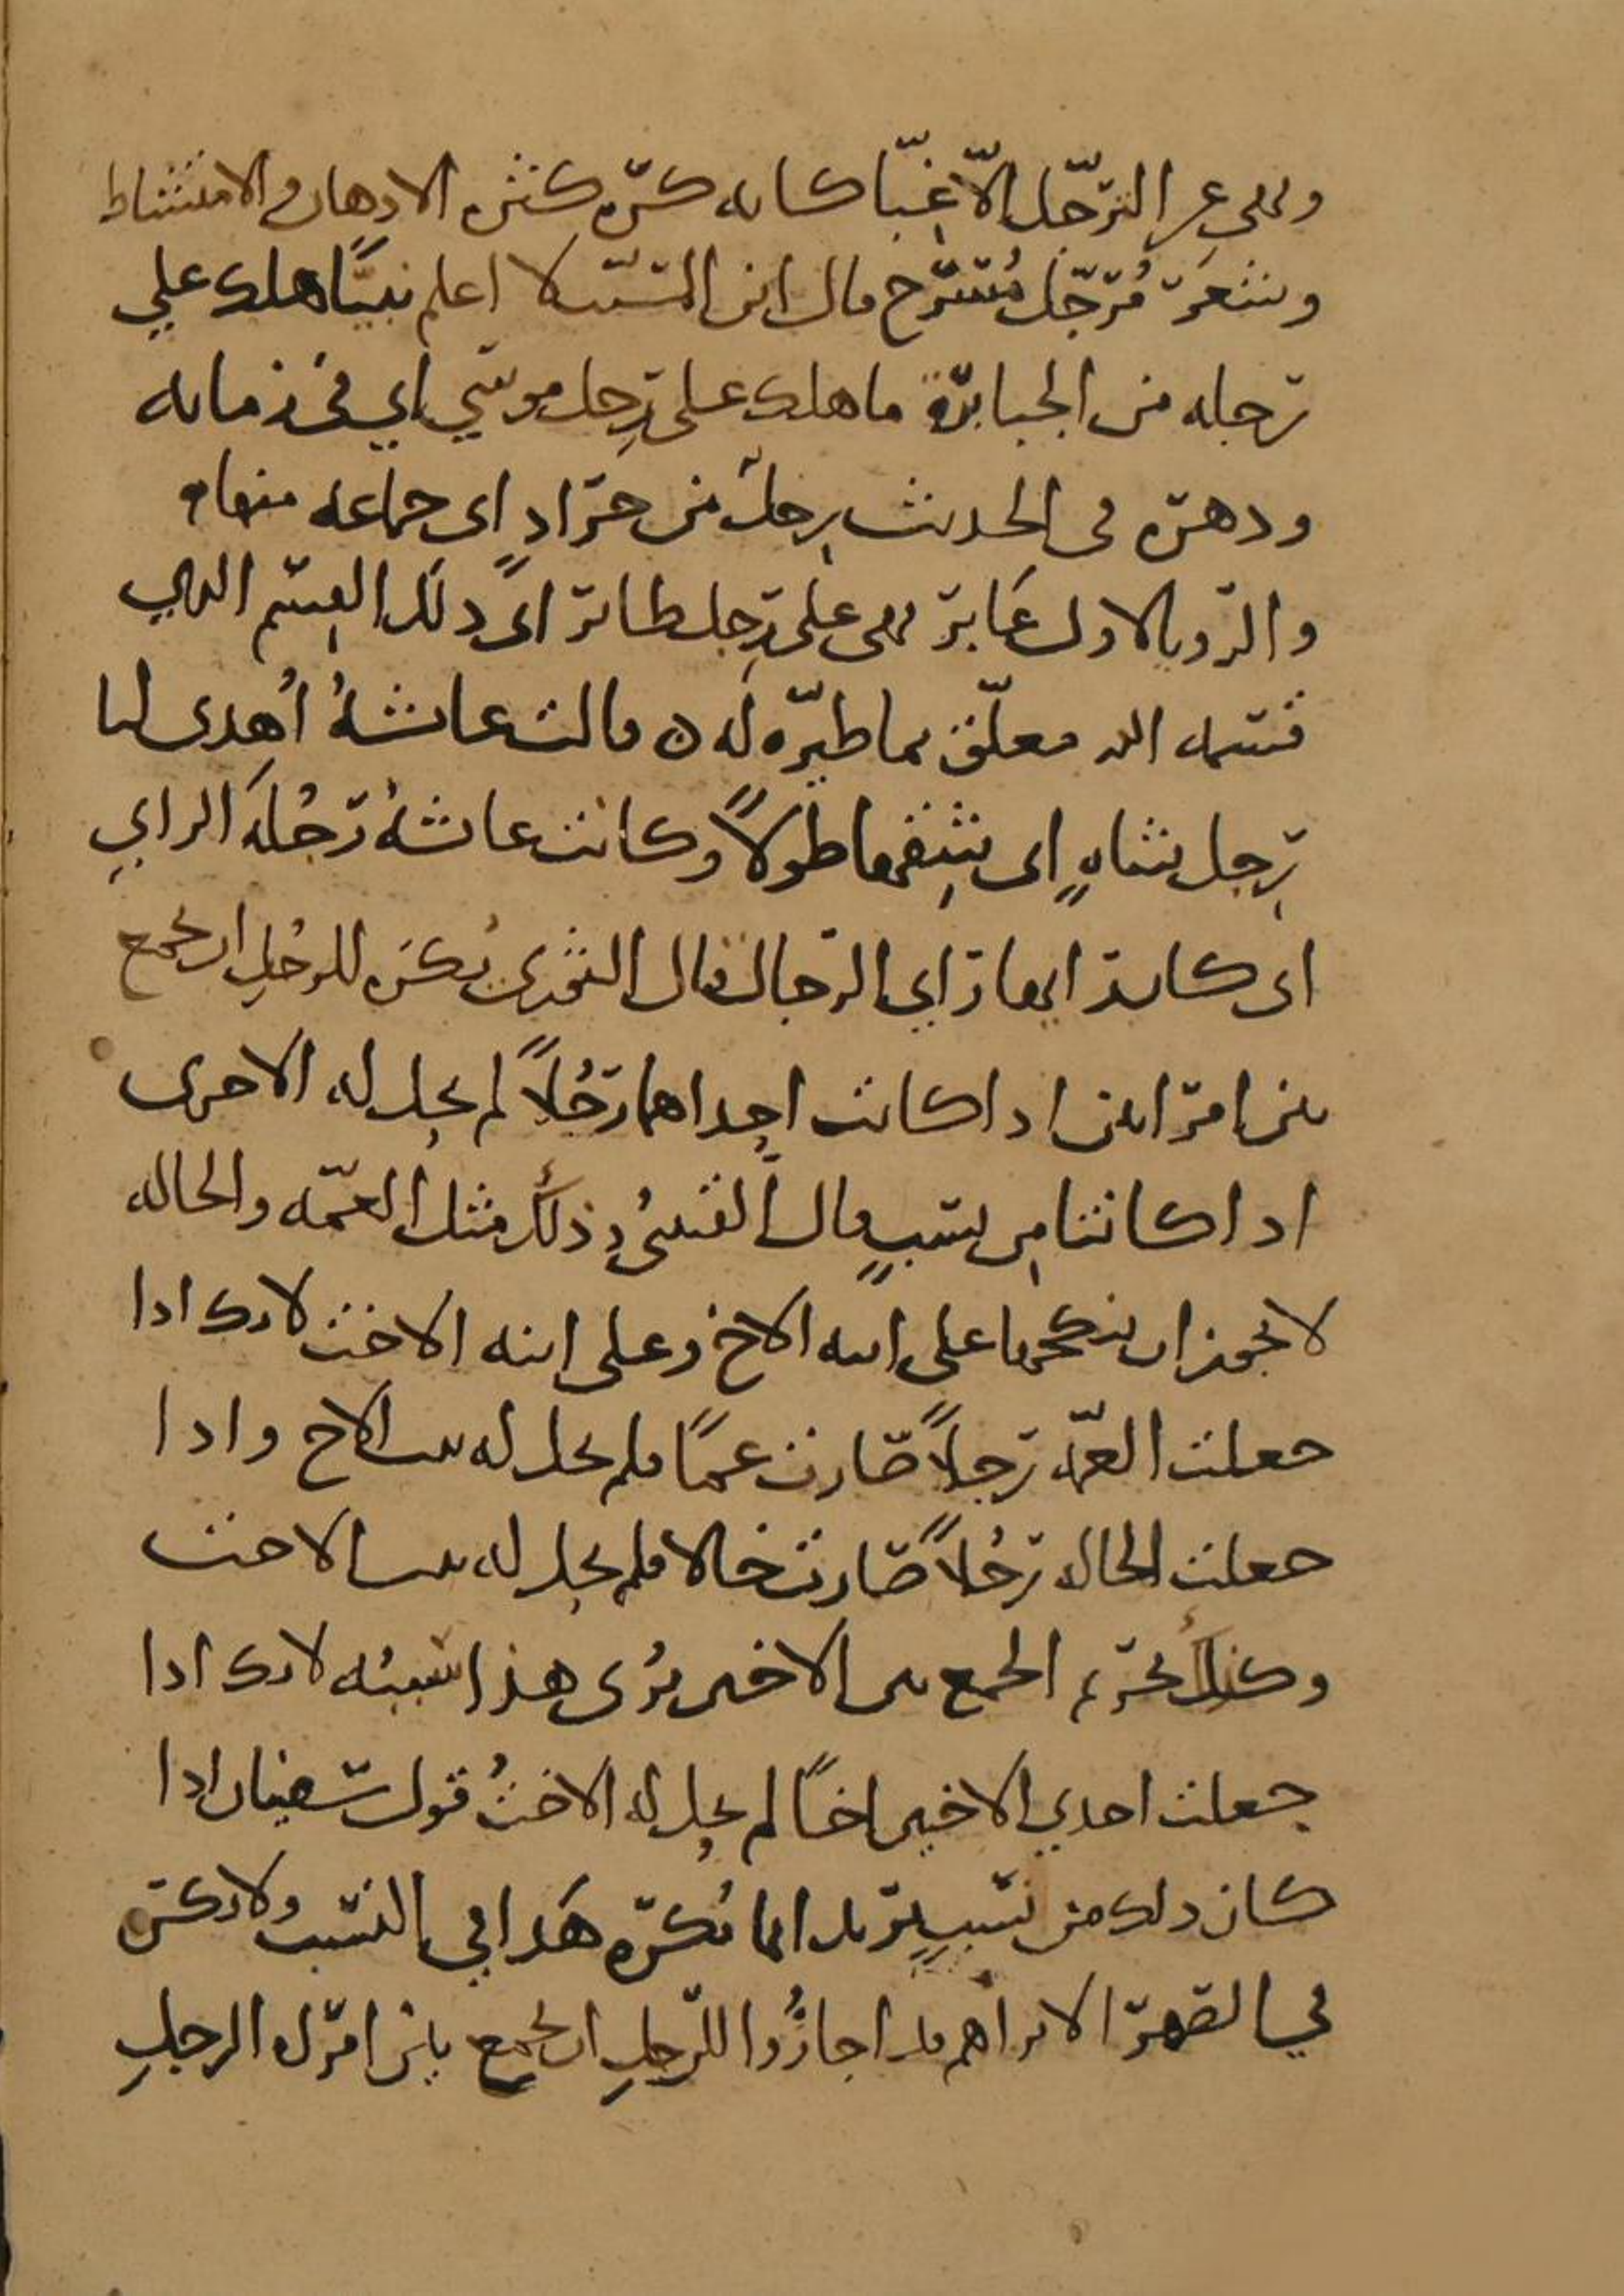 ونهى عن الترجّل الّا غبّا كانه كره كثره الادهان والامتشاط
وشعر مُرجّل مُسرّح قال ابن المسيب لا اعلم نبيًّا هلك على
رجله من الجبابرة ما هلك على رِجل موسى اي في زمانه
ودهره في الحديث رِجل من جرادٍ اى جماعه منها
والرويا لاول عَابر وهى على رِجل طائر اىَ ذلك القِسم الذي
قسمه الله معلّق بما طيّره له ه قالت عائشهُ اُهدِى لنا
رِجل شاهٍ اى بشِقها طولاً وكانت عائشهُ رَجُلَه الراي
اى كان رايها راي الرجال قال الثورى يُكرَه للرجُلِ ان يجمع
بين امراتين اذا كانت احِداهما رَجُلاً لم يحِل له الاخرى
اذا كانتا مِن نسبٍ قال القتبىُ وذلك مثل العمّه والخاله
لا يجوز ان ينكحها على ابنه الاخ وعلى ابنه الاخت لانك اذا
جعلت العمّه رجلاً صارت عمًا فلم يحل له بنت الاخ واذا
جعلت الخاله رجُلاً صارت خالا فلم يحِل له بنت الاخت
وكذلك يحرم الجمع بين الاختين يُرى هذا سبيله لانك اذا
جعلت احدي الاختين اخًا لم يحِل له الاختُ قول سفيان اذا
كان ذلك من نسبٍ يريد انما يُكره هَذا في النسب ولا يكره
في الصهر الا تراهم قد اجازُوا للرّجلِ ان يجمع بين امراه الرجلِ